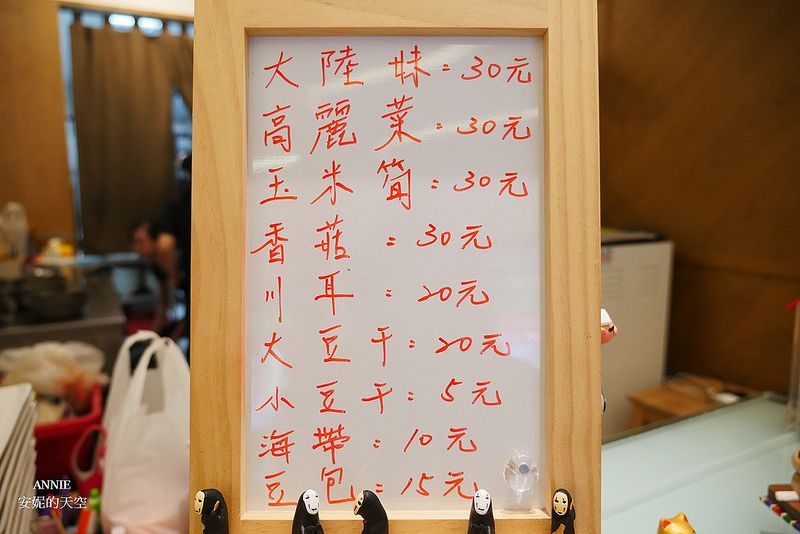 大陸妹：30元
高麗菜：30元
玉米筍：30元
香菇：30元
川耳：20元
大豆干：20元
小豆干：5元
海帶：10元
豆包：15元
ANNIE
安妮的天空